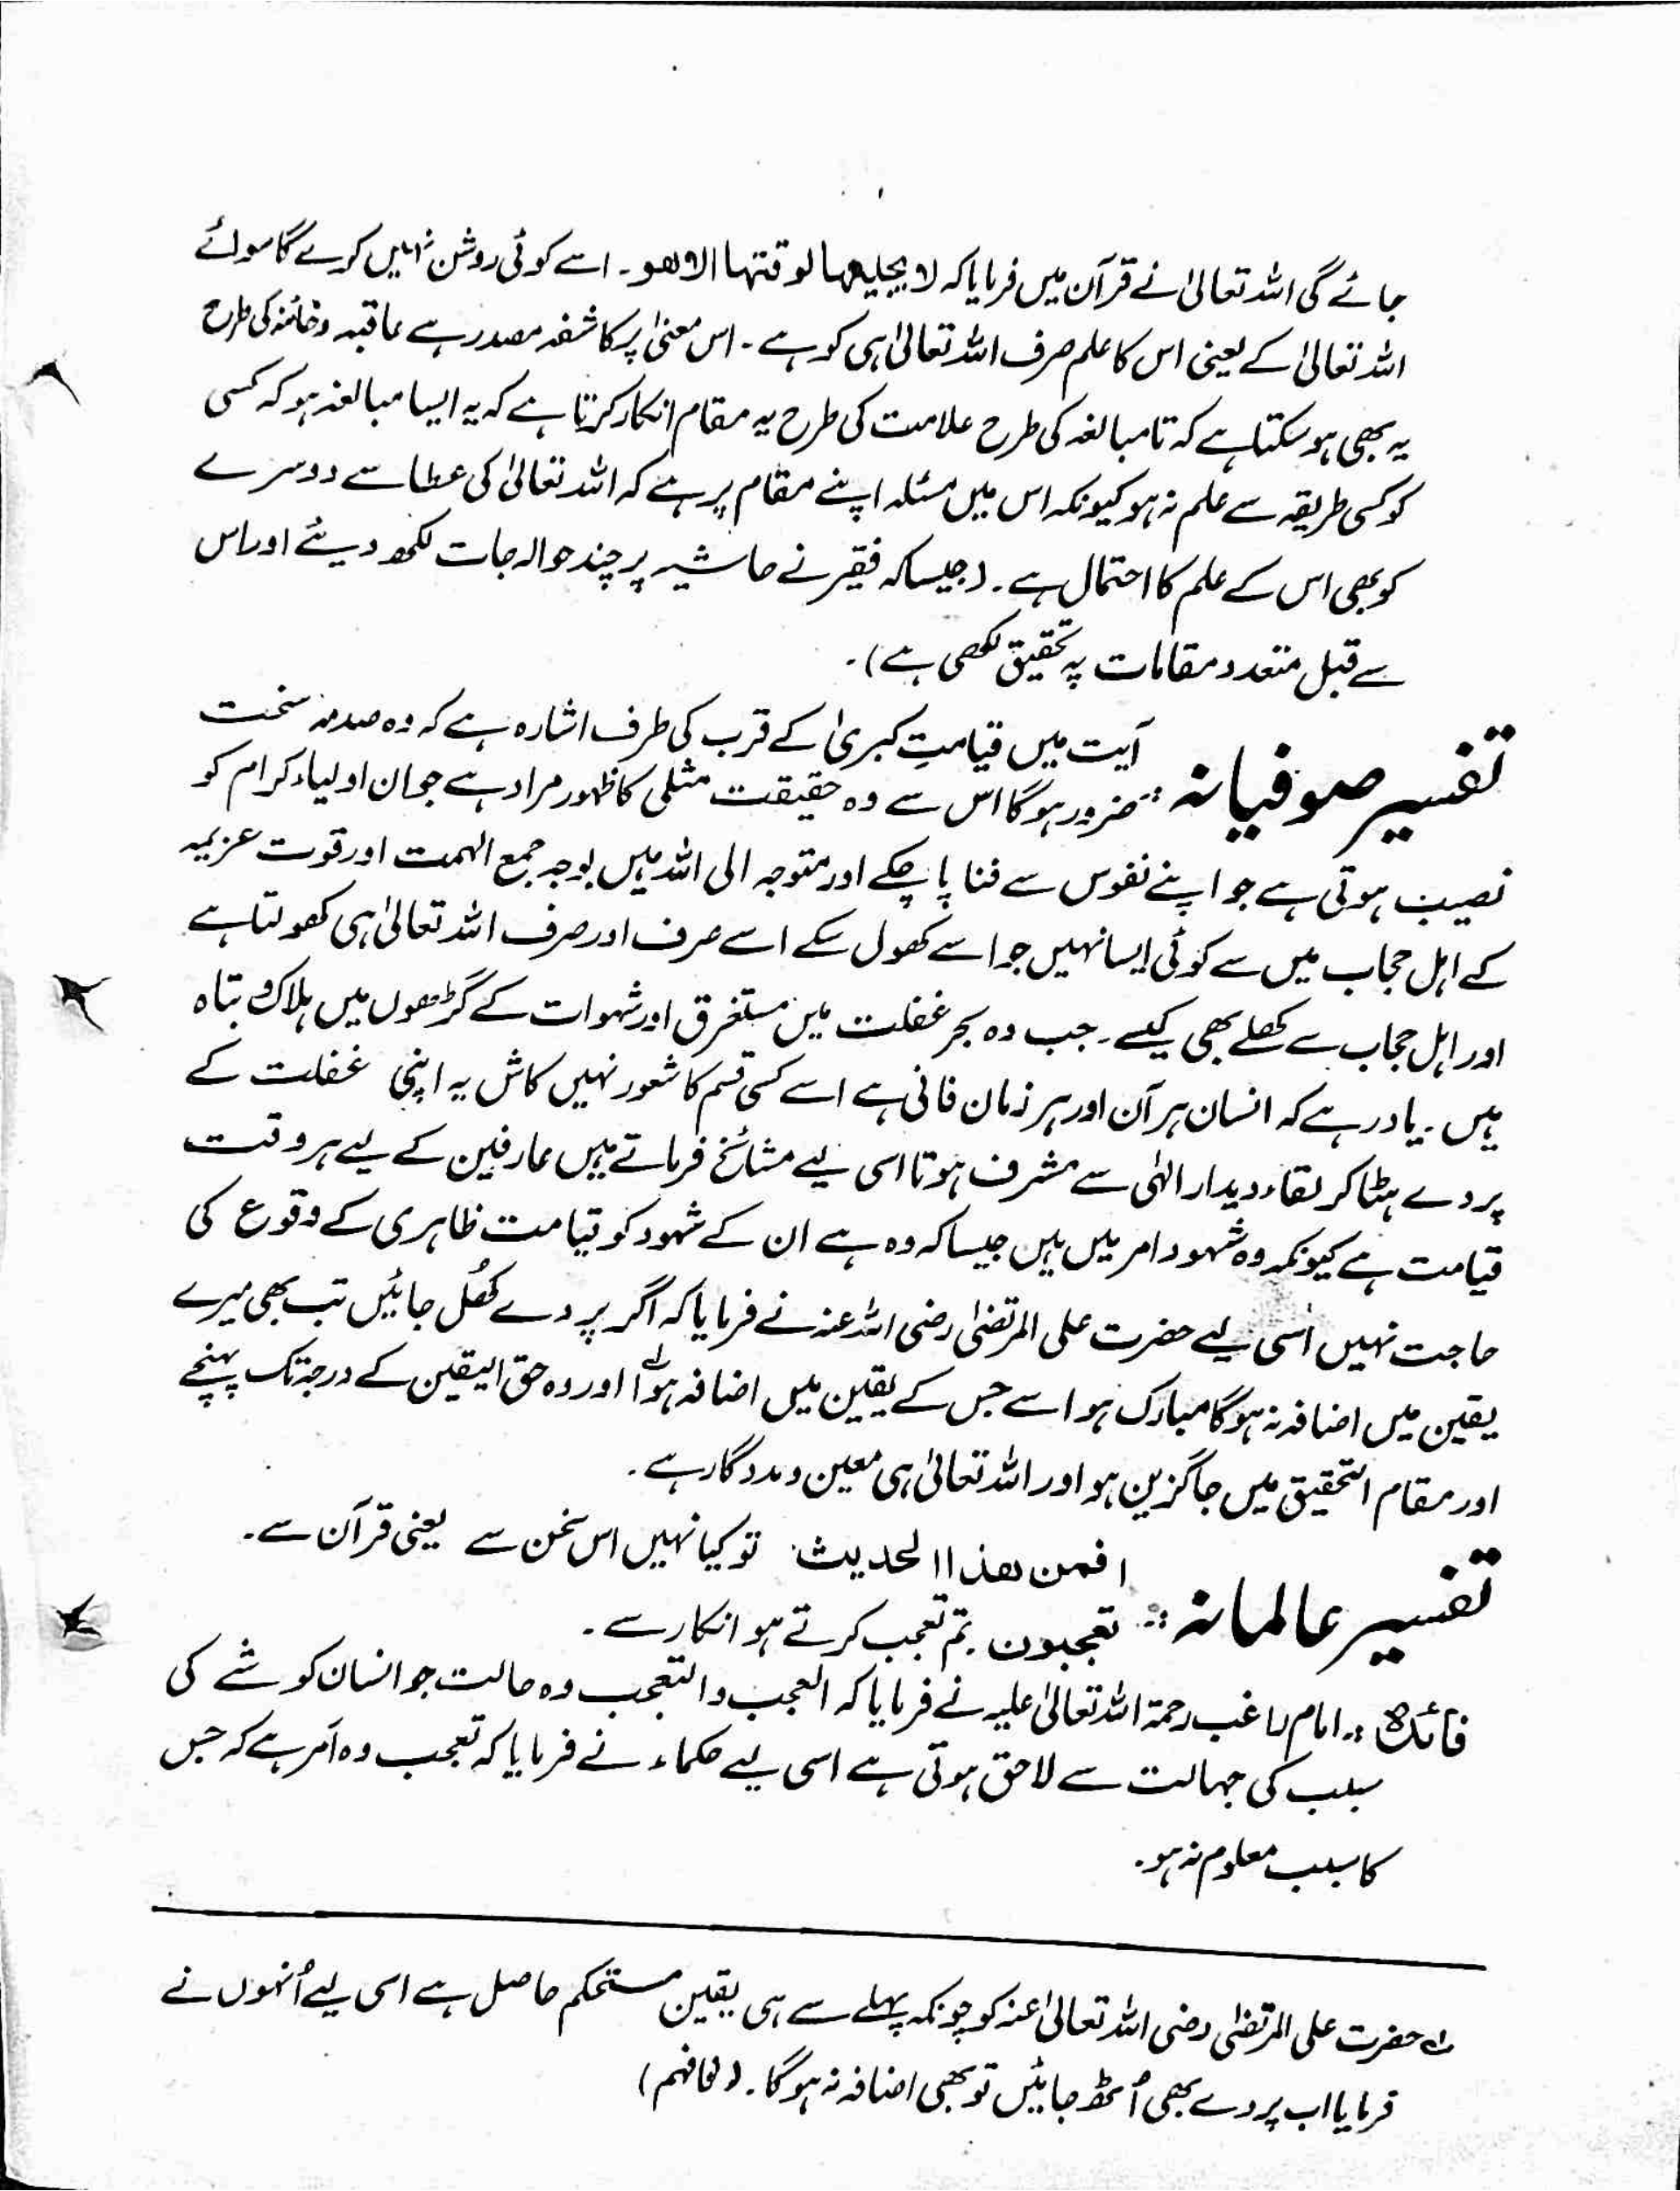 جائے گی اللہ تعالیٰ نے قرآن میں فرمایا کہ لا یجلیھا لوقتہا الا ھو۔ اسے کوئی روشن نہیں کرے گا سوائے
اللہ تعالیٰ کے یعنی اس کا علم صرف اللہ تعالیٰ ہی کو ہے۔ اس معنیٰ پر کاشفہ مصدر ہے عاقبہ و خائنہ کی طرح
یہ بھی ہو سکتا ہے کہ تا مبالغہ کی طرح علامت کی طرح یہ مقام انکار کرتا ہے کہ یہ ایسا مبالغہ ہو کہ کسی
کو کسی طریقہ سے علم نہ ہو کیونکہ اس میں مسئلہ اپنے مقام پر ہے کہ اللہ تعالیٰ کی عطا سے دوسرے
کو بھی اس کے علم کا احتمال ہے۔ (جیسا کہ فقیر نے حاشیہ پر چند حوالہ جات لکھ دیئے اور اس
سے قبل متعدد مقامات پہ تحقیق لکھی ہے)۔
تفسیر صوفیانہ :: آیت میں قیامتِ کبریٰ کے قرب کی طرف اشارہ ہے کہ وہ صدمہ سخت
ضرور ہوگا اس سے وہ حقیقت مثلی کا ظہور مراد ہے جو ان اولیاء کرام کو
نصیب ہوتی ہے جو اپنے نفوس سے فنا پا چکے اور متوجہ الی اللہ ہیں بوجہ جمع الہمت اور قوت عزیمہ
کے اہل حجاب میں سے کوئی ایسا نہیں جو اسے کھول سکے اسے صرف اور صرف اللہ تعالیٰ ہی کھولتا ہے
اور اہل حجاب سے کھلے بھی کیسے۔ جب وہ بحر غفلت میں مستغرق اور شہوات کے گڑھوں میں ہلاک و تباہ
ہیں۔ یاد رہے کہ انسان ہر آن اور ہر زمان فانی ہے اسے کسی قسم کا شعور نہیں کاش یہ اپنی غفلت کے
پردے ہٹا کر لقاء و دیدار الٰہی سے مشرف ہوتا اسی لیے مشائخ فرماتے ہیں عارفین کے لیے ہر وقت
قیامت ہے کیونکہ وہ شہود امر میں ہیں جیسا کہ وہ ہے ان کے شہود کو قیامت ظاہری کے وقوع کی
حاجت نہیں اسی لیے حضرت علی المرتضیٰ رضی اللہ عنہ نے فرمایا کہ اگر پردے کھُل جائیں تب بھی میرے
یقین میں اضافہ نہ ہوگا مبارک ہو اسے جس کے یقین میں اضافہ ہوا ؎ اور وہ حق الیقین کے درجہ تک پہنچے
اور مقام التحقیق میں جاگزین ہو اور اللہ تعالیٰ ہی معین و مددگار ہے۔
تفسیر عالمانہ :: افمن ھذا الحدیث تو کیا نہیں اس سخن سے یعنی قرآن سے۔
تعجبون۔ تم تعجب کرتے ہو انکار سے۔
فائدہ :: امام راغب رحمۃ اللہ تعالیٰ علیہ نے فرمایا کہ العجب و التعجب وہ حالت جو انسان کو شے کی
سبب کی جہالت سے لاحق ہوتی ہے اسی لیے حکماء نے فرمایا کہ تعجب وہ اَمر ہے کہ جس
کا سبب معلوم نہ ہو۔
؎ حضرت علی المرتضیٰ رضی اللہ تعالیٰ عنہ کو چونکہ پہلے سے ہی یقین مستحکم حاصل ہے اسی لیے اُنہوں نے
فرمایا اب پردے بھی اُٹھ جائیں تو بھی اضافہ نہ ہوگا۔ (فافہم)